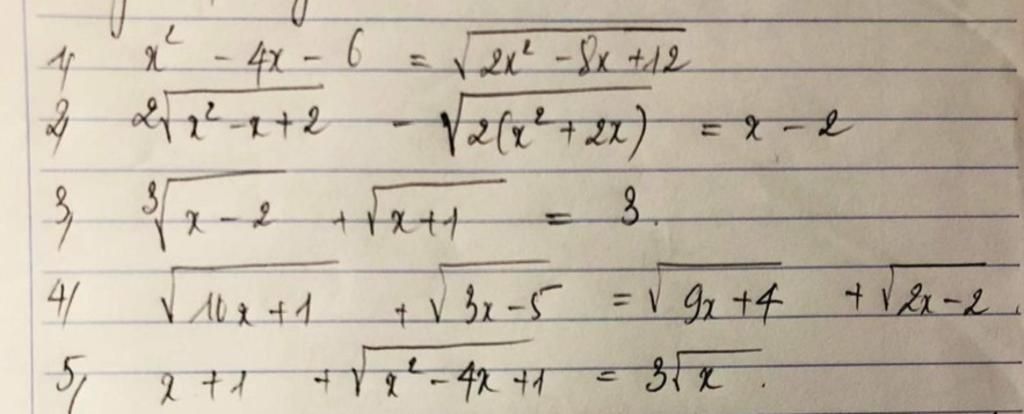 1) x² - 4x - 6 = √(2x² - 8x + 12)
2) 2√(x² - x + 2) - √(2(x² + 2x)) = x - 2
3) ³√(x - 2) + √(x + 1) = 3.
4) √(10x + 1) + √(3x - 5) = √(9x + 4) + √(2x - 2).
5) x + 1 + √(x² - 4x + 1) = 3√x.